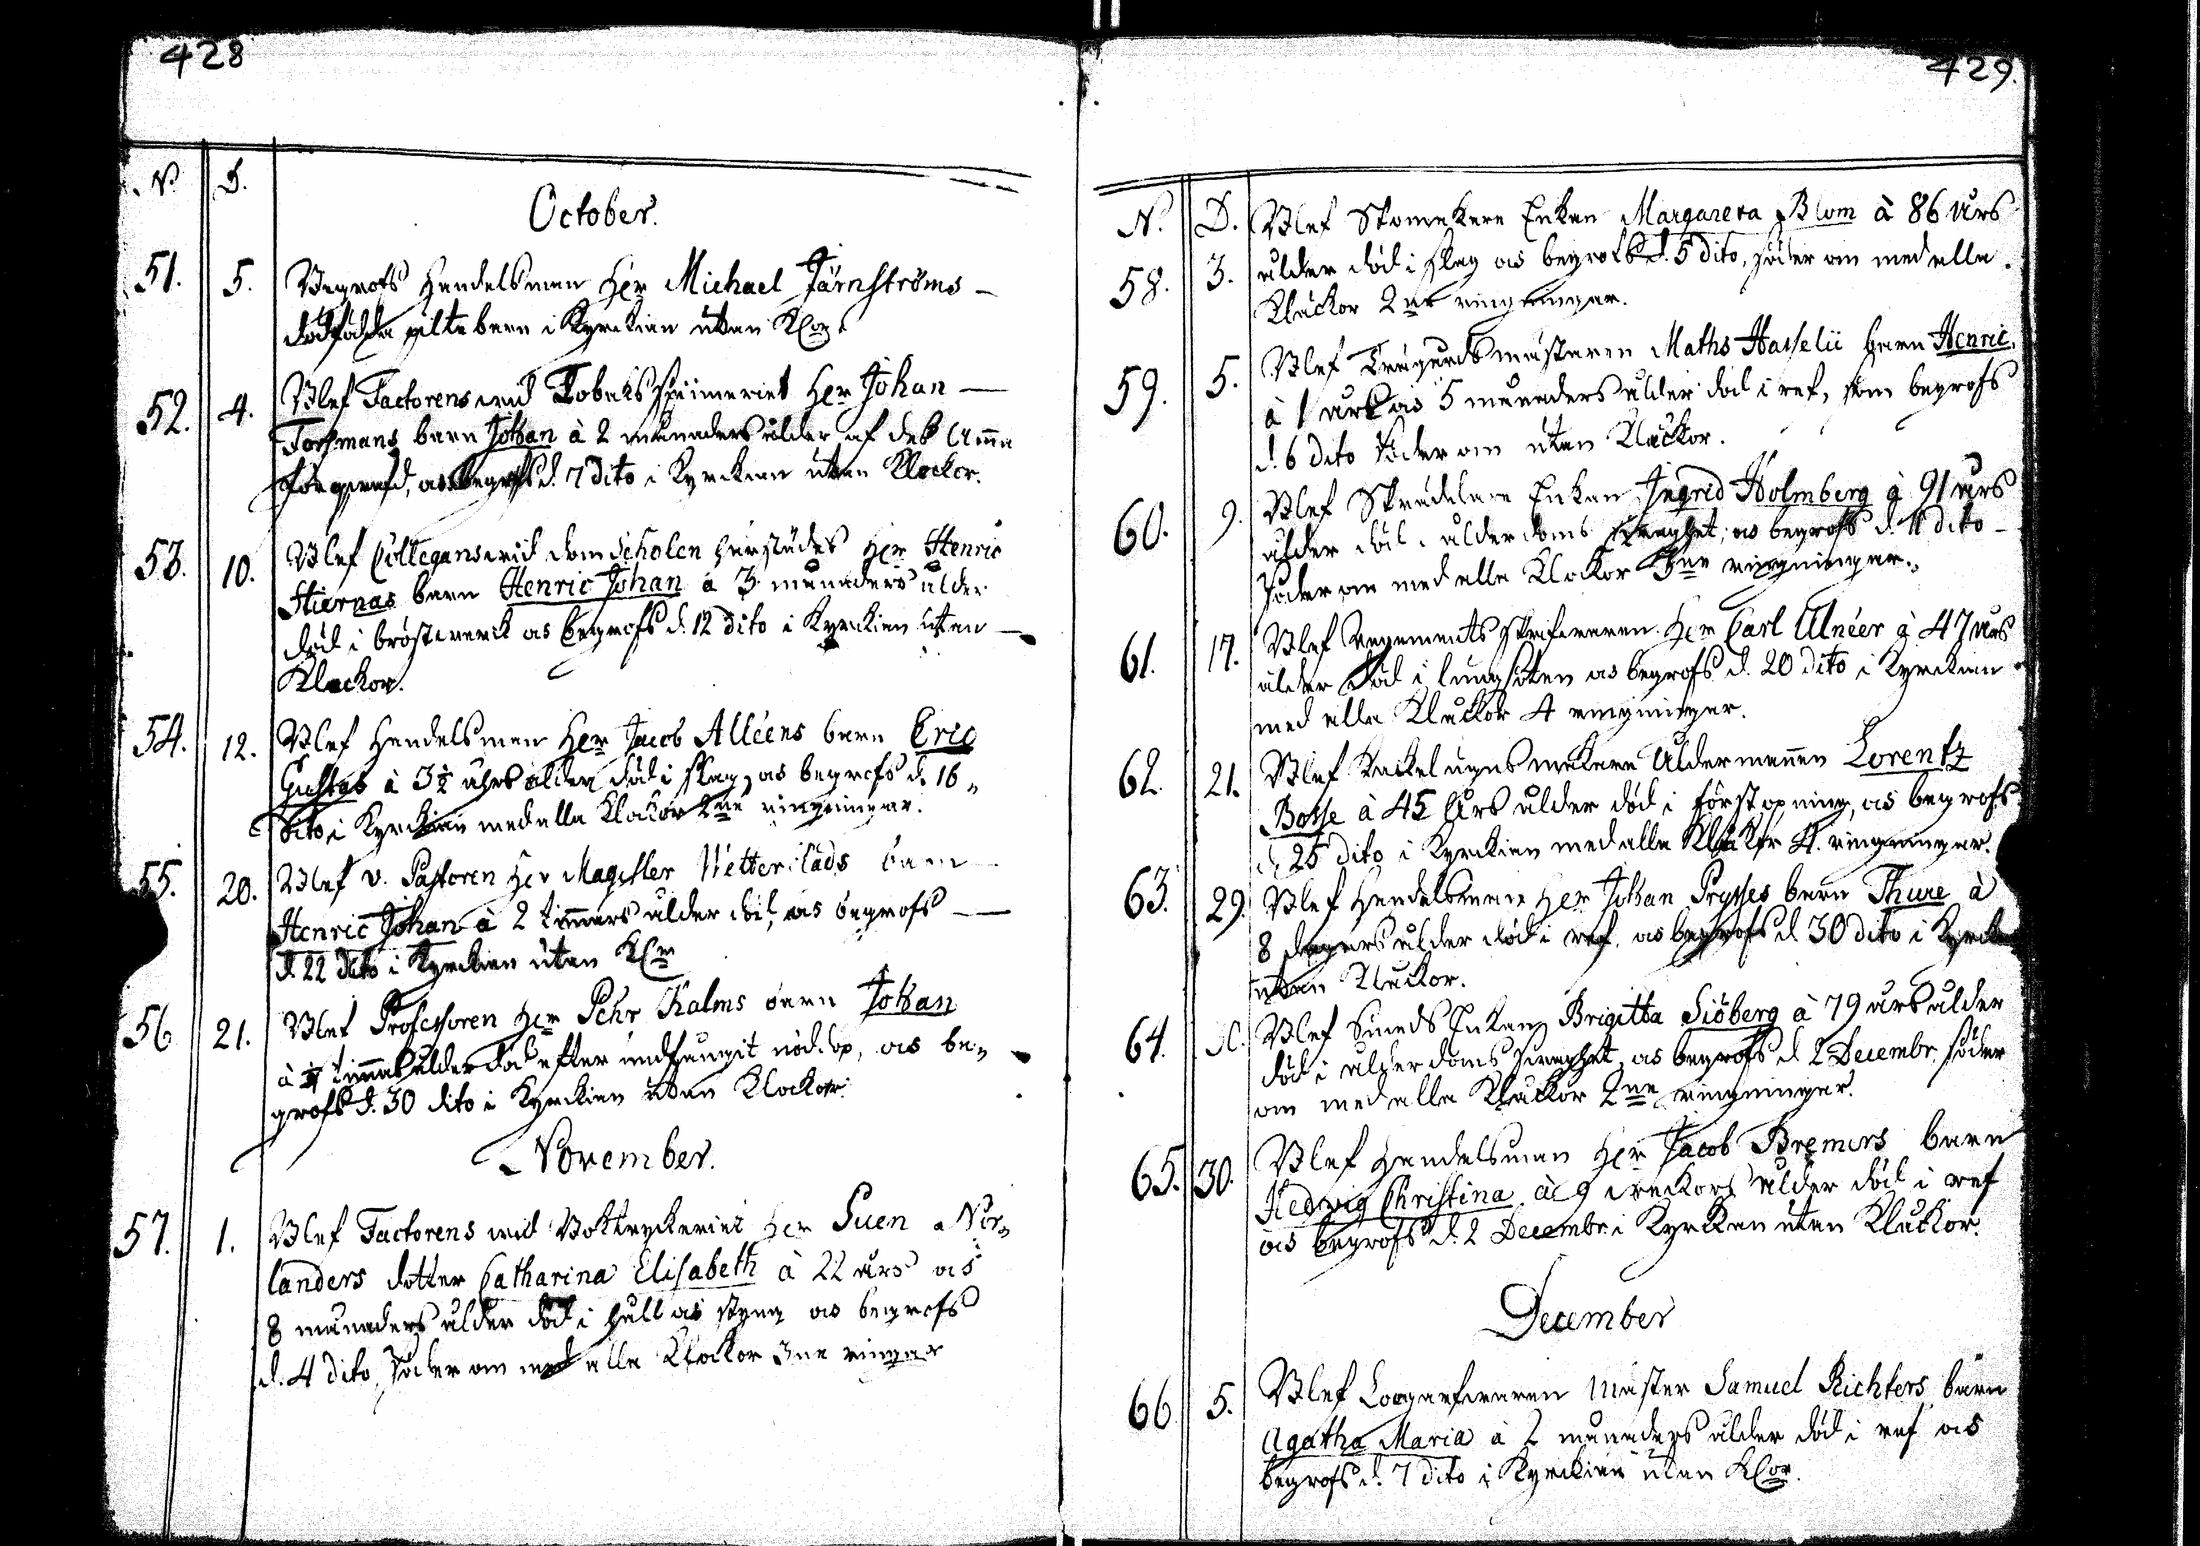 428
N. D.
October.
51. 5. Begrofs Handelsman Herr Michael Järnströms
dödfödda gåssebarn i Kyrckian utan Klor.
52. 4. Blef Factorens wid Tobaks spinneriet Herr Johan
Forsmans barn Johan à 2 månaders ålder af des Amma
d. 7 dito i Kyrckian utan Klockor.
53. 10. Blef Collegans wid dom Scholen härstädes Herr Henric
Hiernas barn Henric Johan à 3 månaders ålder
död i bröstwerck os begrofs d. 12 dito i Kyrckian utan
Klockor.
54. 12. Blef Handelsman Herr Jacob Alléens barn Eric
Gustav à 3½ åhrs ålder död i slag, os begrofs d. 16
dito i Kyrckian med alla Klockor 2ne ringningar.
55. 20. Blef v. Pastoren Her Magister Wetterblads barn
Henric Johan à 2 timmars ålder död, os begrofs
d. 22 dito i Kyrckian utan Klor
56 21. Blef Professoren Herr Pehr Kalms barn Johan
à timmas ålder död efter undfångit nöddop, os be=
grofs d. 30 dito i Kyrckian utan Klockor.
November.
57. 1. Blef Factorens wid Boktryckeriet Her Suen Nor=
landers dotter Catharina Elisabeth à 22 års os
8 månaders ålder död i håll os styng os begrofs
d. 4 dito, söder om med alla Klockor 3ne ringar
429.
N. D. Blef Skomakare Enkan Margareta Blom à 86 Års
58. 3. ålder död i slag os begrofs d. 5 dito, söder om med alla
Klåckor 2ne ringningar.
59. 5. Blef Trägårdsmästaren Maths Hasselii barn Henric
à 1 års os 5 månaders ålder död i ref, som begrofs
d. 6 dito söder om utan Klåckor.
60. 9. Blef Skräddare Enkan Ingrid Holmberg à 91 års
ålder död i ålderdoms swaghet, os begrofs d. 11 dito
söder om med alla Klockor 3ne ringningar.
61. 17. Blef Regements skrifwaren Herr Carl Alnéer à 47 års
ålder död i lungsoten os begrofs d. 20 dito i Kyrckian
med alla Klåckor 4 ringningar.
62. 21. Blef Kackelugnsmakare Åldermannen Lorentz
Bosse à 45 Års ålder död i förstopning, os begrofs
d. 25 dito i Kyrckian med alla Klåckor 4. ringningar.
63. 29. Blef Handelsman Herr Johan Prysses barn Thure à
8 dagars ålder död i ref. os begrofs d 30 dito i Kyrck
utan Klåckor.
64. Blef Smeds Enkan Brigitta Siöberg à 79 års ålder
död i ålderdoms swaghet, os begrofs d. 2 Decembr. söder
om med alla Klåckor 2ne ringningar.
65. 30. Blef Handelsman Herr Jacob Bremers barn
Hedwig Christina à 9 weckors ålder död i ref
os begrofs d. 2 Decembr. i Kyrckan utan Klåckor.
December
66 5. Blef Logarfwaren Mäster Samuel Richters barn
Agatha Maria à 2 månaders ålder död i ref os
begrofs d. 7 dito i Kyrckian utan Klor.